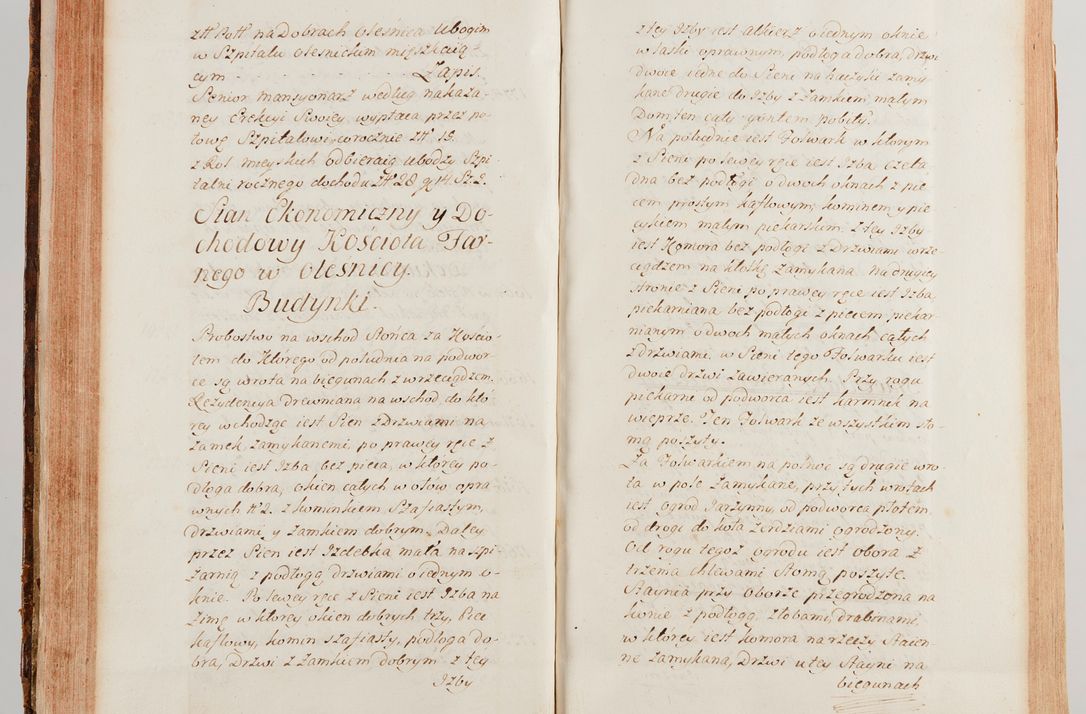 ztt Pott na Dobrach Olesnica Ubogim
w Szpitalu olesnickim mięszkaią-
cym - - - - - - - - - Zapis.
Senior Mansyonarz według nakaza-
ney Erekcyi Swoiey, wypłaca przez po-
łowę Szpitalowi corocznie Ztt 15.
z Rol mieyskich odbieraią ubodzy Szpi-
talni rocznego dochodu Ztt 28 g 14. Sz. 2.
Stan Ekonomiczny y Do-
chodowy Kościoła Far-
nego w Olesnicy.
Budynki.
Probostwo na wschod Słońca za Kościo-
łem do Którego od południa na podwor-
ce są wrota na biegunach z wrzeciądzem.
Rezydencya drewniana na wschod do kto
rey wchodząc iest Sien z Drzwiami na
zamek zamykanemi, po prawey ręce z
Sieni iest Izba bez pieca, w ktorey po-
dłoga dobra, okien całych w ołow opra
wnych N 2. z kominkiem Szafiastym,
drzwiami y zamkiem dobrym. Daley
przez Sien iest Izdebka mała na Spi
żarnią z podłogą, drzwiami o iednym o-
knie. Po lewey ręce z Sieni iest Izba na
Zimę w ktorey okien dobrych trzy, Piec
kaflowy, komin szafiasty, podłoga do-
bra, Drzwi z Zamkiem dobrym z tey
Izby
z tey Izby iest alkierz o iednym oknie
w laski oprawnym, podłoga dobra, drzwi
dwoie iedne do Sieni na haczyki zamy-
kane drugie do Izby z zamkiem małym
Dom ten cały gontem pobity.
Na południe iest Folwark w ktorym
z Sieni po lewey ręce iest Izba czela-
dna bez podłogi o dwoch oknach z pie
cem prostym kaflowym, kominem y pie
cykiem małym piekarskim. z tey Izby
iest Komora bez podłogi z Drzwiami wrze-
ciądzem na kłotkę zamykana. Na drugiey
stronie z Sieni po prawey ręce iest Izba,
piekarniana bez podłogi z piecem piekar-
nianym o dwoch małych oknach całych
z drzwiami. w Sieni tego Folwarku iest
dwoie drzwi zawieranych. Przy rogu
piekarni od podworca iest karmnik na
wieprze. Ten Folwark ze wszystkim sło-
mą poszyty.
Za Folwarkiem na połnoc są drugie wro-
ta w pole zamykane, przy tych wrotach
iest ogrod Jarzynny, od podworca płotem,
od drogi do koła żerdziami ogrodzony.
Od rogu tegoż ogrodu iest obora z
trzema chlewami Słomą poszyte.
Staynia przy oborze przegrodzona na
konie z podłogą, żłobami, drabinami.
w ktorey iest komora na rzeczy Staien
ne zamykana, Drzwi u tey Stayni na
biegunach